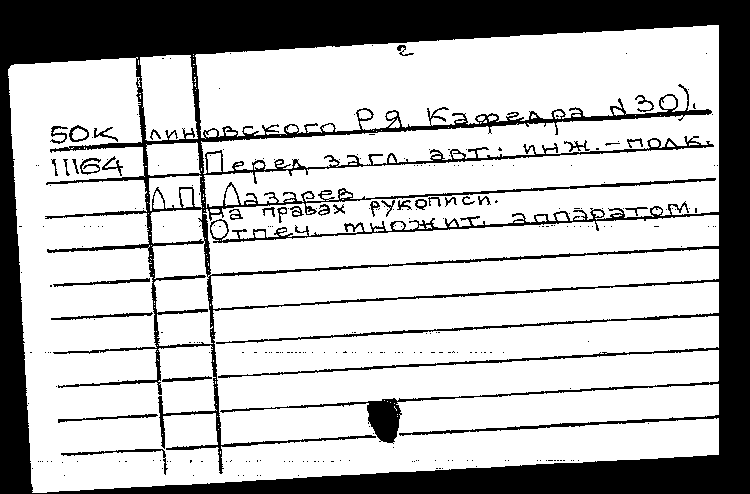 2
50к линовского Р.Я. Кафедра N 30).
11164 Перед загл. авт.: инж.-полк.
Л.П. Лазарев.
На правах рукописи.
Отпеч. множит. аппаратом.